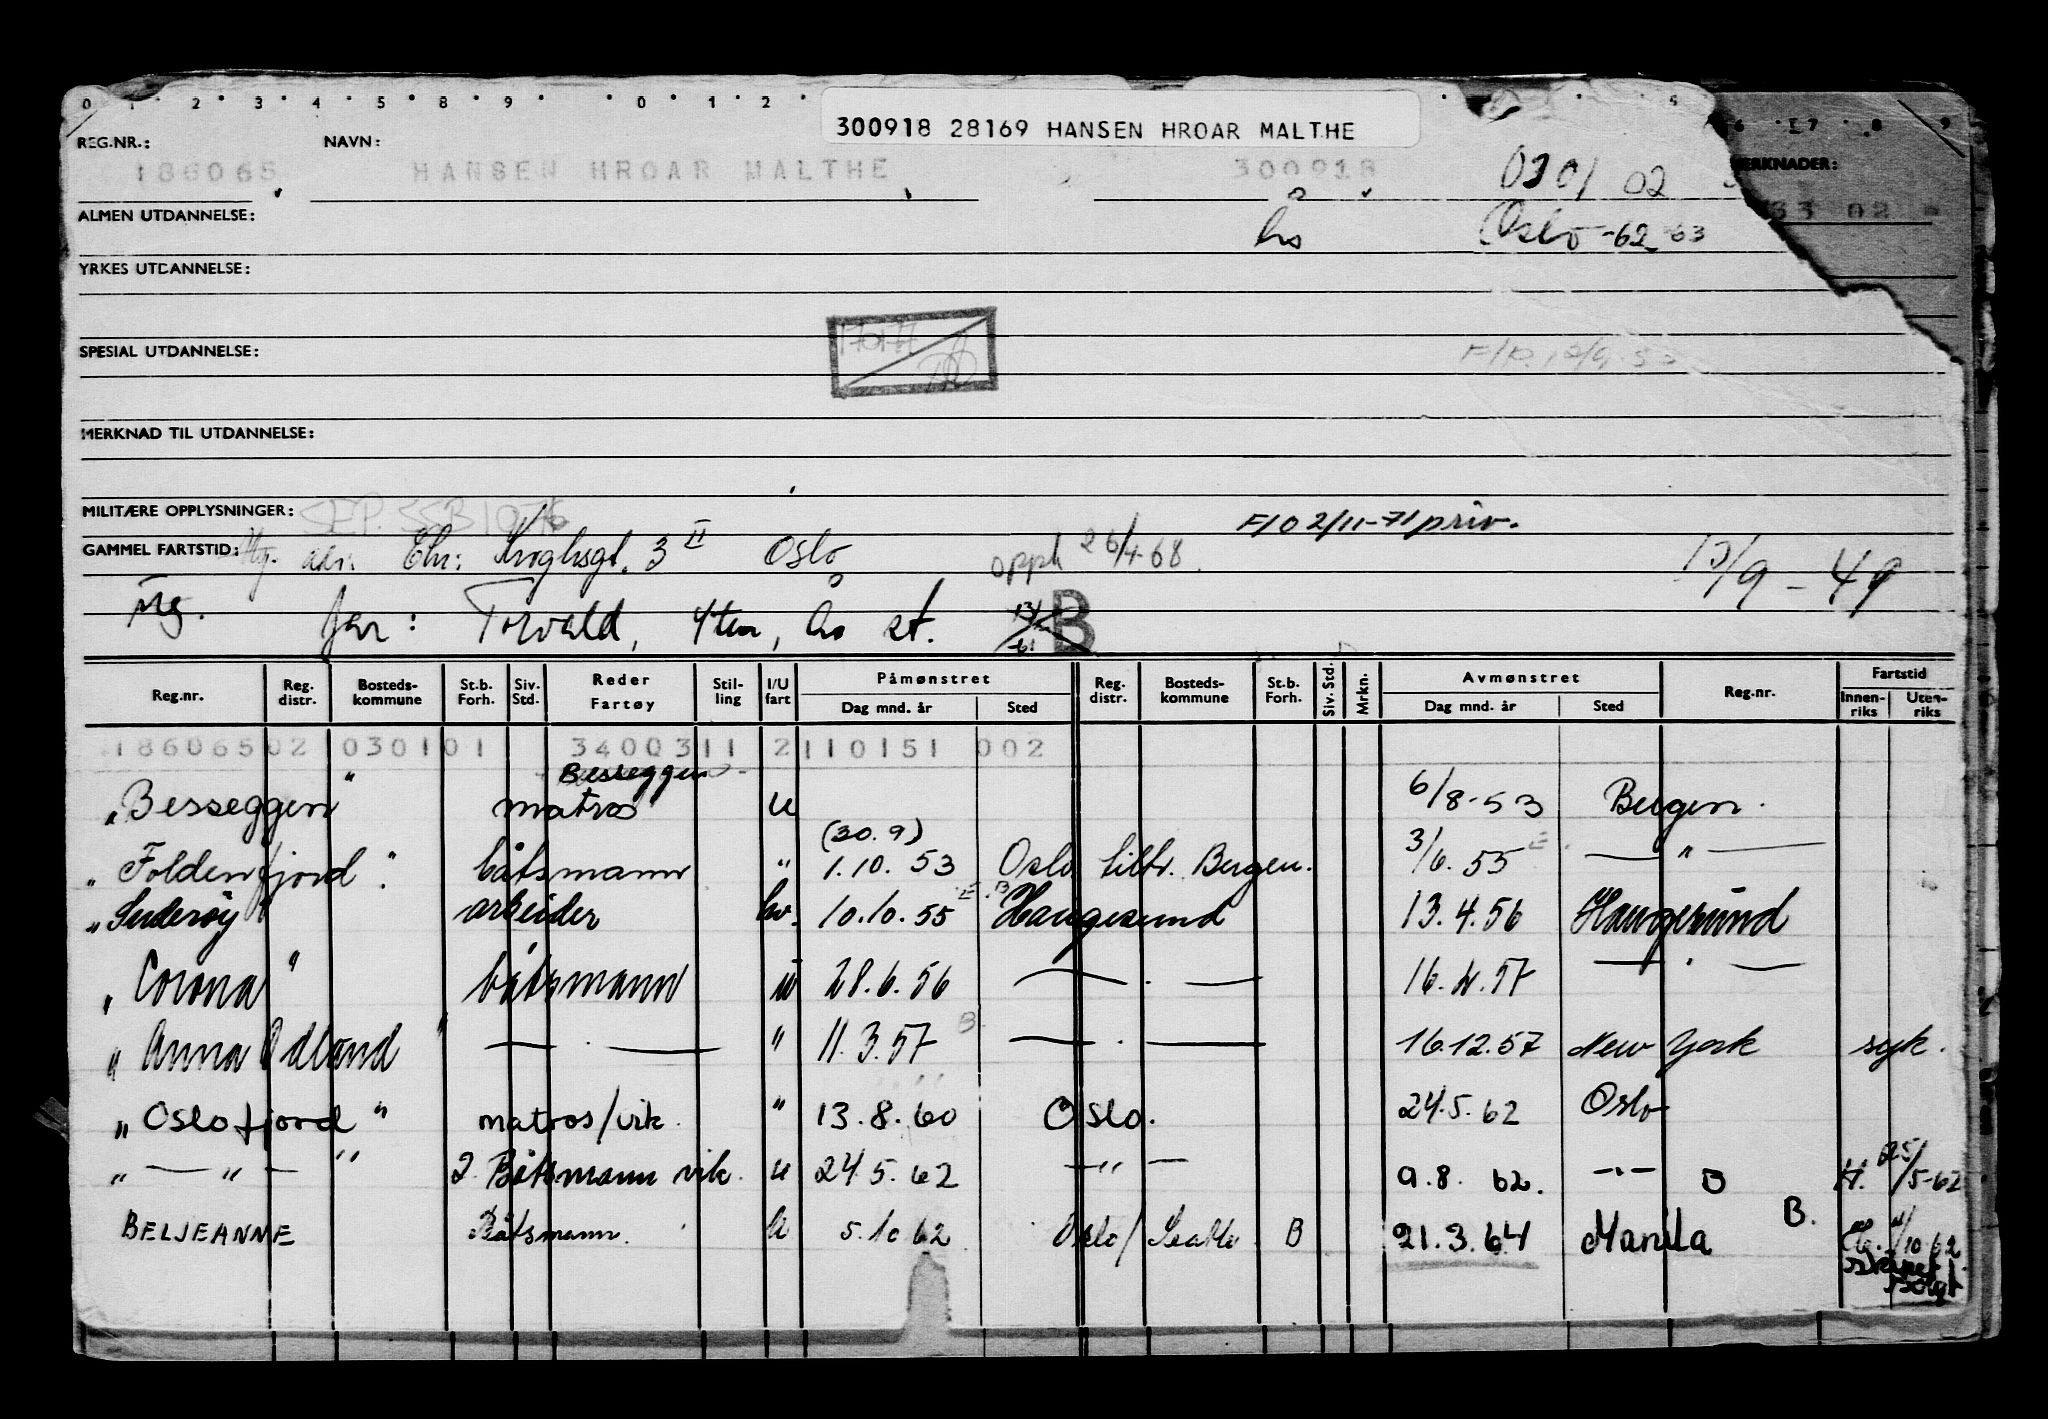 0 1 2 3 4 5 8 9 0 1 2
300918 28169 HANSEN HROAR MALTHE
REG.NR.: NAVN:
186065 HANSEN HROAR MALTHE 300918 0301 02
MERKNADER:
ALMEN UTDANNELSE: hs Oslo -62-63 02
YRKES UTDANNELSE:
SPESIAL UTDANNELSE:
MERKNAD TIL UTDANNELSE:
MILITÆRE OPPLYSNINGER: F/O 2/11-71 priv.
GAMMEL FARTSTID: adr: Chr: Kroghsgt. 3 II Oslo opph 26/4-68.
far: Torvald, hs st. B
Reg.nr. Reg. distr. Bosteds-kommune St.b. Forh. Siv. Std. Reder Fartøy Stil-ling I/U fart Påmønstret Dag mnd. år Sted Reg. distr. Bosteds-kommune St.b. Forh. Siv. Std. Mrkn. Avmønstret Dag mnd. år Sted Reg.nr. Fartstid Innen-riks Uten-riks
18606502 030101 3400311 2110151 002
Besseggen
„Besseggen" matros u 6/8-53 Bergen.
(30.9)
„Foldenfjord" båtsmann " 1.10.53 Oslo tiltr. Bergen. 3/6.55 — " —
„Suderøy" arbeider hv. 10.10.55 Haugesund 13.4.56 Haugesund
„Corona" båtsmann u 28.6.56 — . — 16.4.57 — . —
„Anna Odland" — . — " 11.3.57 — . — 16.12.57 New York syk.
„Oslofjord" matros/vik. " 13.8.60 Oslo. 24.5.62 Oslo
„ — " — " 2. Båtsmann vik. u 24.5.62 — " — 9.8.62. — " — B 25/5-62
BELJEANNE Båtsmann. U 5.10.62 Oslo/ B 21.3.64 Manila B. 10 62
skipet solgt